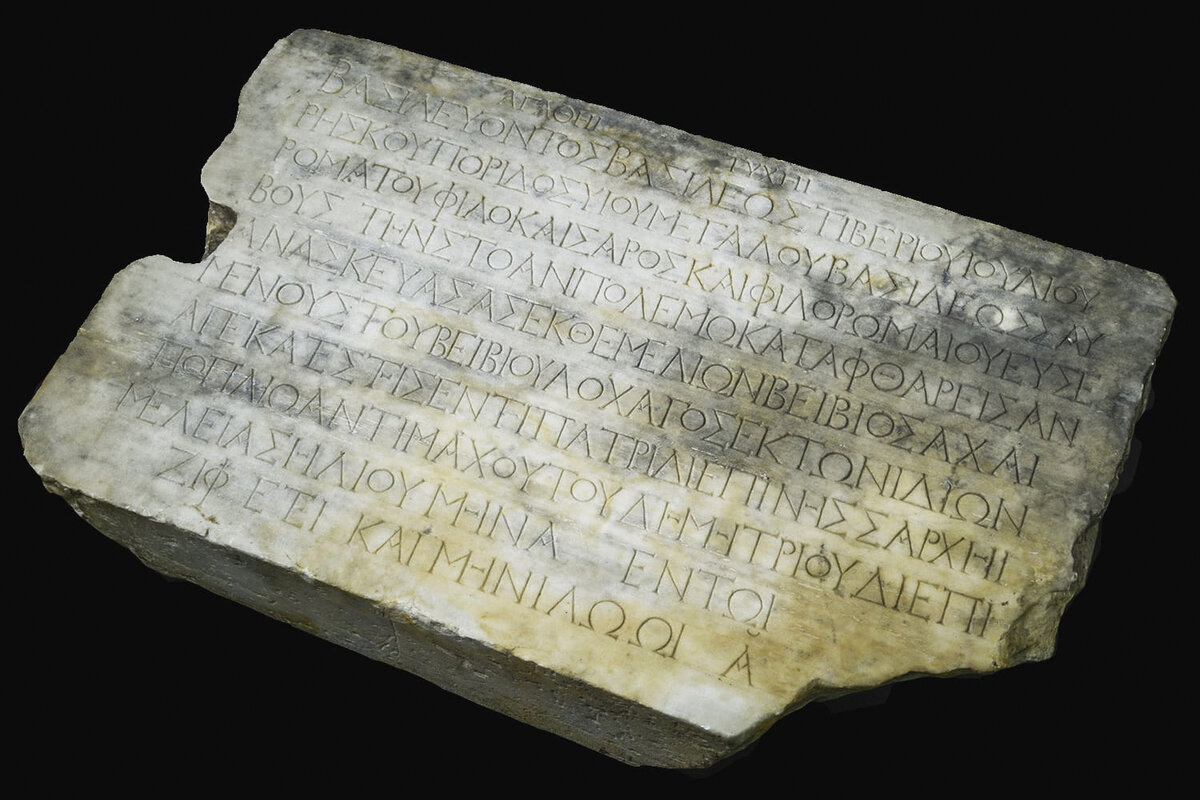 ΑΓΑΘΗΙ ΤΥΧΗΙ
ΒΑΣΙΛΕΥΟΝΤΟΣΒΑΣΙΛΕΟΣΤΙΒΕΡΙΟΥΙΟΥΛΙΟΥ
ΡΗΣΚΟΥΠΟΡΙΔΟΣΥΙΟΥΜΕΓΑΛΟΥΒΑΣΙΛΕΟΣΣΑΥ
ΡΟΜΑΤΟΥΦΙΛΟΚΑΙΣΑΡΟΣΚΑΙΦΙΛΟΡΩΜΑΙΟΥΕΥΣΕ
ΒΟΥΣ ΤΗΝΣΤΟΑΝΠΟΛΕΜΟΚΑΤΑΦΘΑΡΕΙΣΑΝ
ΑΝΑΣΚΕΥΑΣΑΣΕΚΘΕΜΕΛΙΩΝΒΕΙΒΙΟΣΑΧΑΙ
ΜΕΝΟΥΣΤΟΥΒΕΙΒΙΟΥΛΟΧΑΓΟΣΕΚΤΩΝΙΔΙΩΝ
ΑΠΕΚΑΤΕΣΤΙΣΕΝΤΗΠΑΤΡΙΔΙΕΠΙΝΗΣΣΑΡΧΗΙ
ΑΝΤΙΜΑΧΟΥΤΟΥΔΗΜΗΤΡΙΟΥΔΙΕΠΙ
ΜΕΛΕΙΑΣΗΛΙΟΥΜΗΝΑ ΕΝΤΩΙ
ΖΙΦ ΕΤΕΙ ΚΑΙΜΗΝΙΛΩΩΙ Α